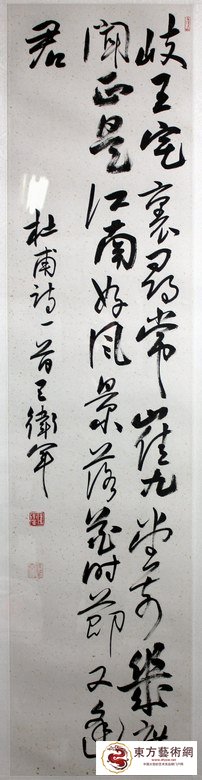 岐王宅裏尋常崔九堂前幾度
聞正是江南好風景落花時節又逢
君
杜甫詩一首王衛軍
東方藝術網